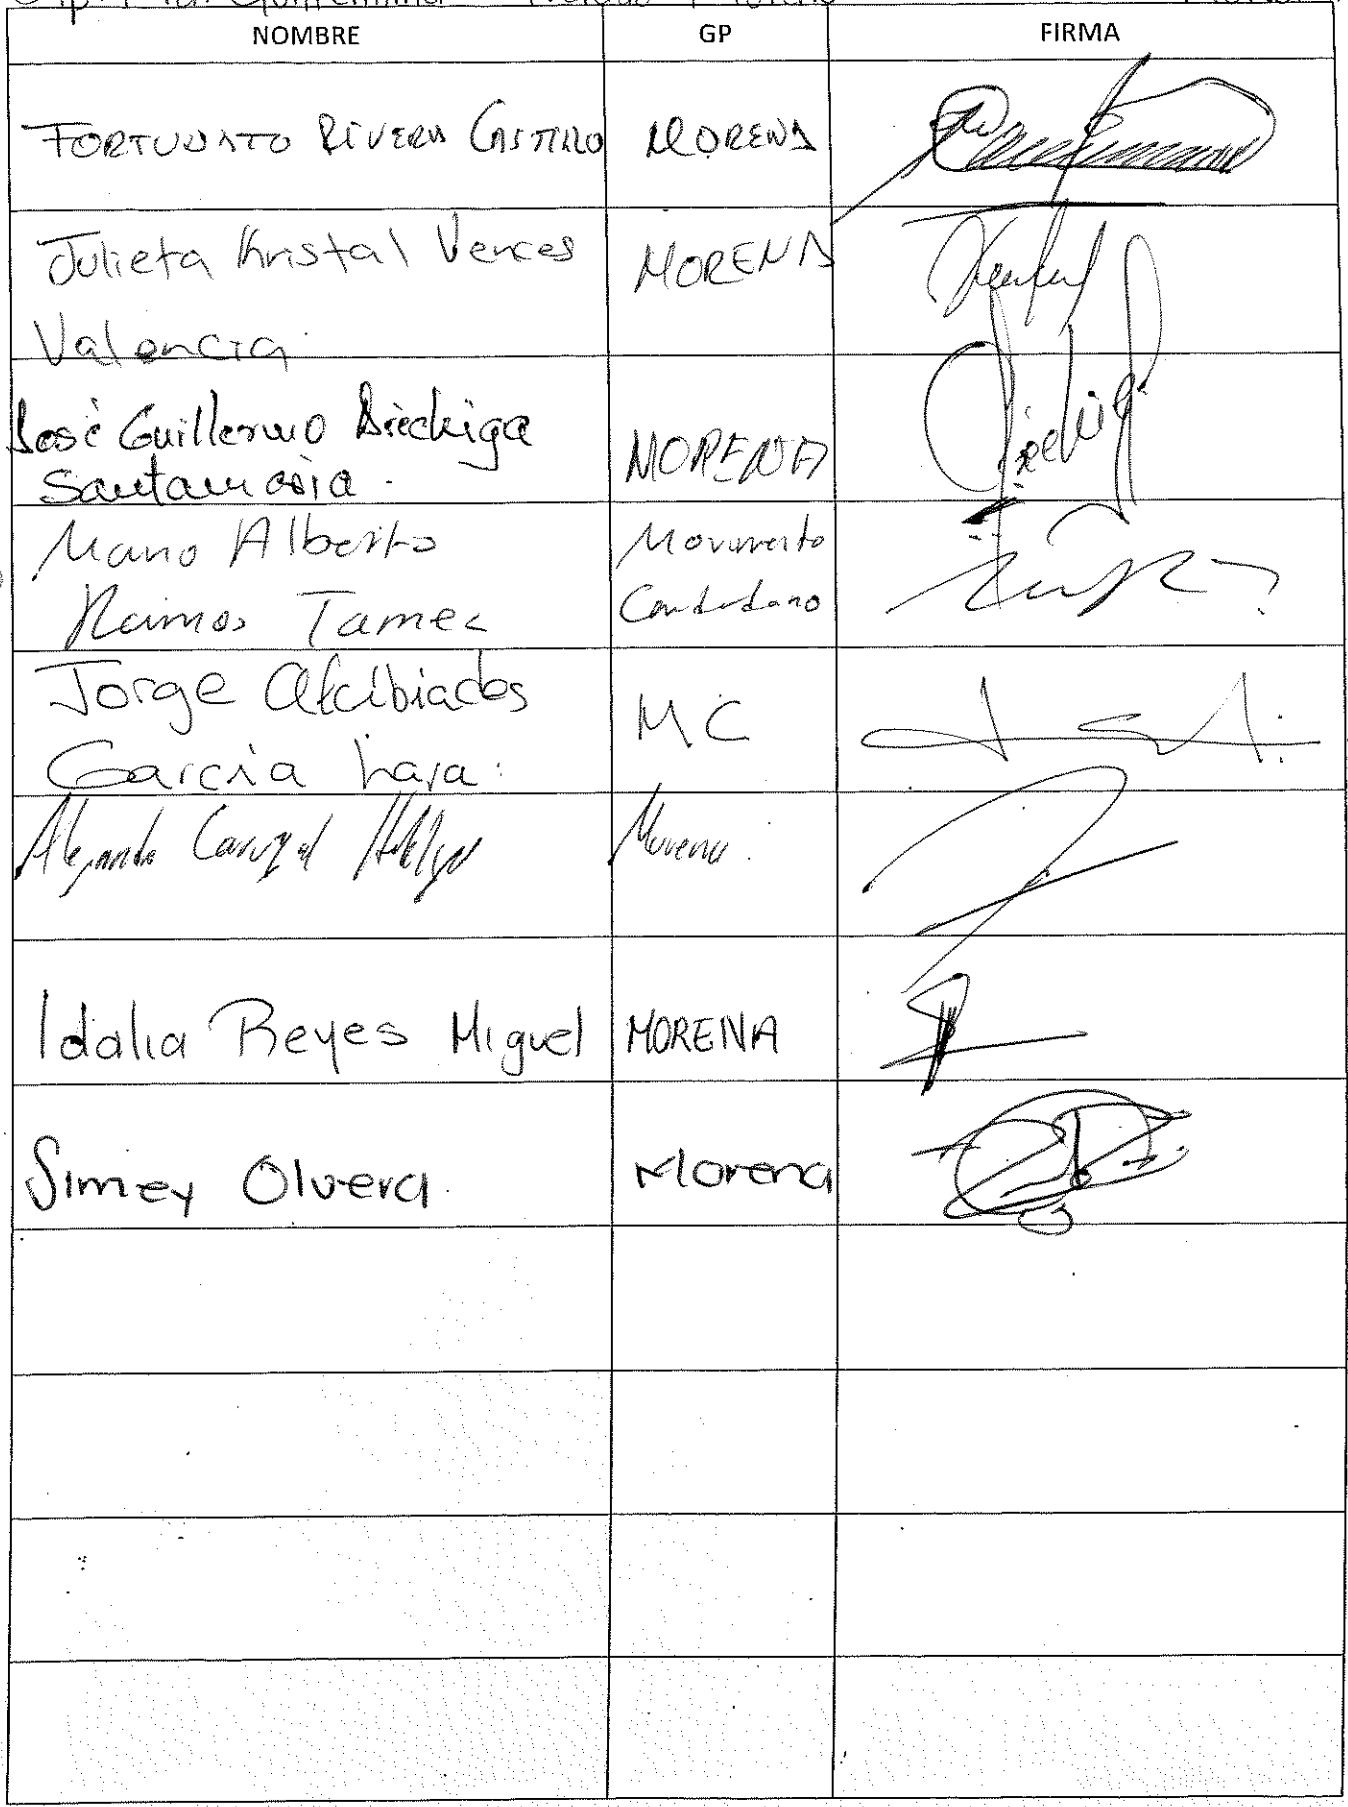 NOMBRE GP FIRMA
FORTUNATO RIVERA CASTILLO MORENA
Julieta Kristal Vences MORENA
Valencia
José Guillermo Aréchiga MORENA
Santamaría.
Mario Alberto Movimiento
Ramos Tamez Ciudadano
Jorge Alcibiades MC
García Lara.
Alejandro Carvajal Hidalgo Morena.
Idalia Reyes Miguel MORENA
Simey Olvera Morena